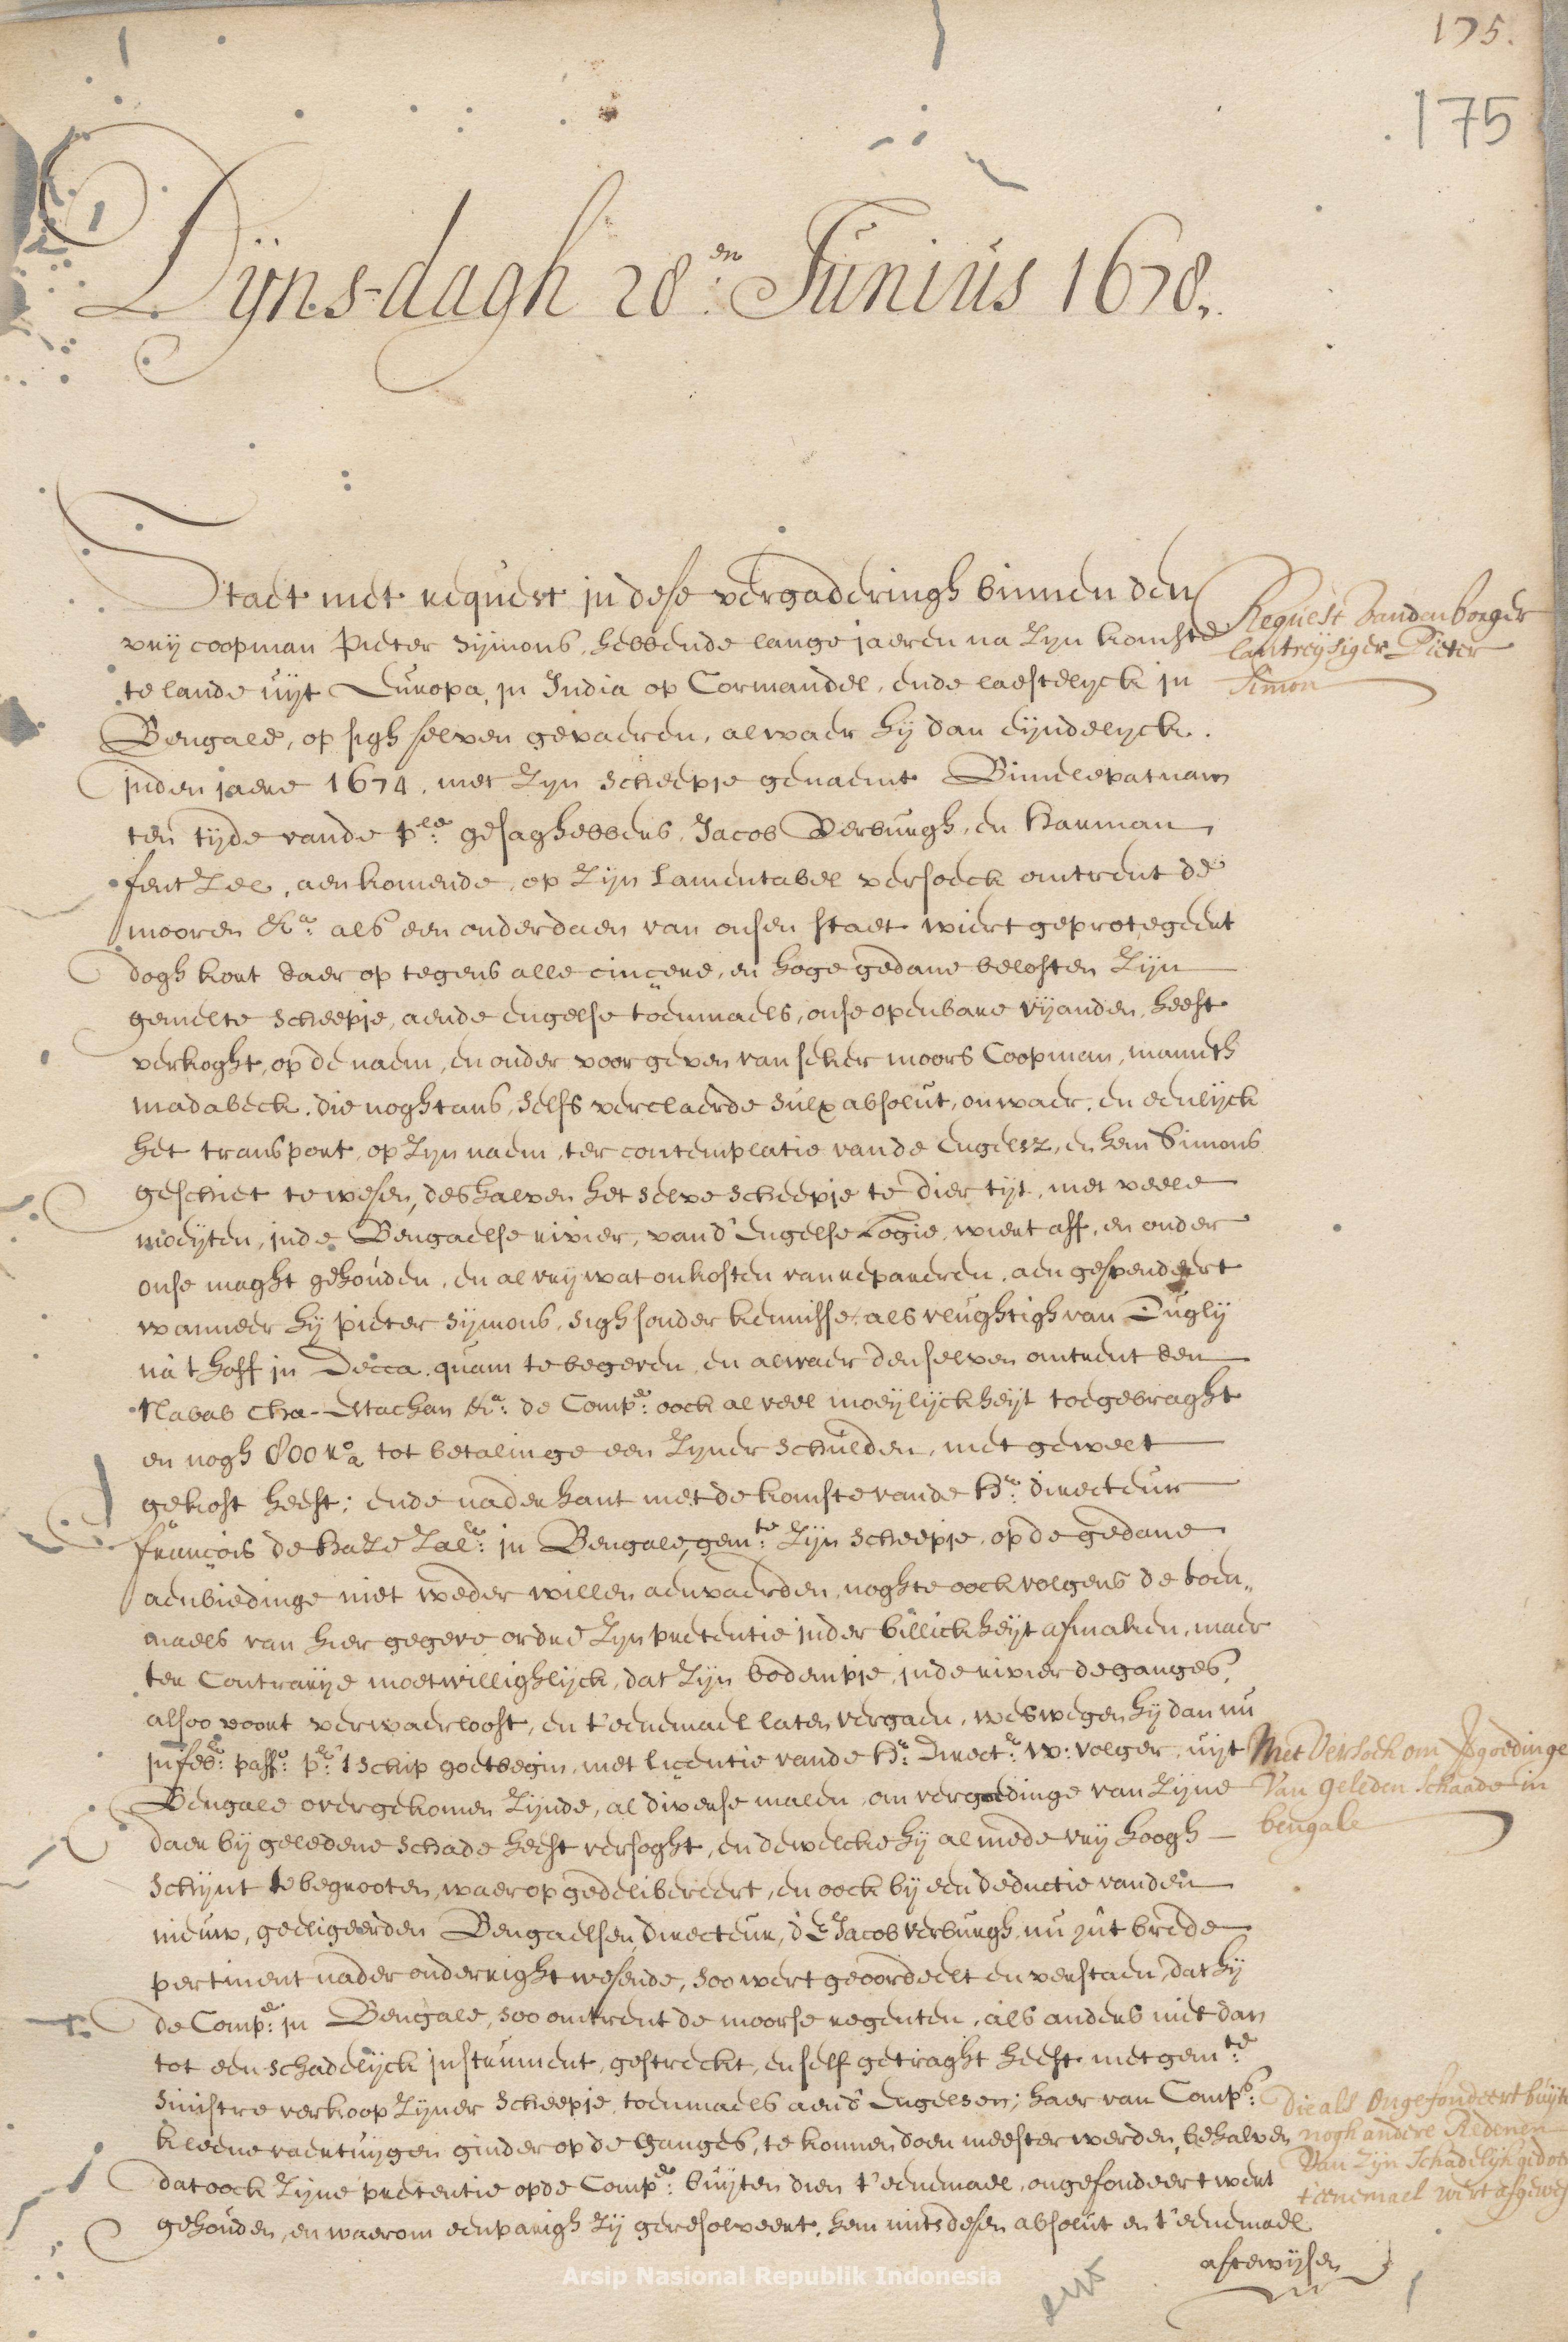 175.
175
Dijns-dagh 28:en Junius 1678.
Staet met request in dese vergaderingh binnen den
vrij coopman Pieter Sijmons, hebbende lange jaeren na zijn komste
te lande uijt Europa, in India op Cormandel, ende laestelijck in
Bengale, op sigh selven gevaeren, alwaer hij dan eijndelijck.
inden jaere 1674, met zijn scheepje genaemt Bimelepatnam
ten tijde vande p:le gesaghebbers, Jacob Verburgh, en Harman
fentzel, aenkomende, op zijn lamentabel versoeck omtrent de
mooren &a: als een onderdaen van onsen staet wiert geprotegeert
dogh kort daer op tegens alle cincere, en hoge gedane beloften zijn
gemelte scheepje, aende engelse toenmaels, onse openbare vijanden, heeft
verkoght, op de naem, en onder voorgeven van seker moors Coopman, mameth
madabeck, die noghtans, selfs verclaerde sulx absolut, onwaer, en eenlijck
het transport, op zijn naem, ter contemplatie vande engelsz, en hem Simons
geschiet te wesen, deshalven het selve scheepje te dier tijt, met veele
moeijten, inde Bengaelse rivier, van d' engelse Logie, wiert aff, en onder
onse maght gehouden, en al vrij wat onkosten van repareren, aen gespendeert
wanneer hij pieter Sijmons, sigh sonder kennisse, als vlughtigh van Ougly
nà 't hoff in Decca, quam te begeven, en alwaer denselven omtrent den
Nabab Cha-Stachan &a: de Comp:e oock al veel moeijlijckheijt toegebraght
en nogh 800 ro:a tot betalinge een zijner schulden, met gewelt
gekost heeft; ende naderhant met de komste vande Hr: directeur
françois de haze zal:r in Bengale, gem:te zijn scheepje, op de gedane
aenbiedinge niet weder willen aenvaerden, noghte oock volgens de toen„
maels van hier gegeve ordre zijn pretentie inder billickheijt afmaken, maer
ter Contrarije moetwillighlijck, dat zijn bodempje, inde rivier de ganges,
alsoo voort verwaerloost, en t'eenemael laten vergaen, weswegen hij dan nu
in feb: pass:o p:r 't schip goetbegin, met licentie vande Hr: Direct:r W: volger, uijt
Bengale overgekomen zijnde, al diverse malen om vergoedinge van zijne
daer bij geledene schade heeft versoght, en dewelcke hij al mede vrij hoogh
schijnt te begrooten, waerop gedelibereert, en oock bij een deductie vanden
nieuw, geeligeerden Bengaelsen directeur, d' E Jacob verburgh nu jnt brede
pertinent nader onderright wesende, soo wert geoordeelt en verstaen, dat hij
de Comp:e in Bengale, soo omtrent de moorse regenten, als anders niet dan
tot een schadelijck instrument, gestreckt, en self getraght heeft met gem:te
sinistre verkoop zijner scheepje, toenmaels aen d' Engelsen; haer van Comp:s
kleene vaertuijgen ginder op de Ganges, te konnen doen meester werden, behalven
dat oock zijne pretentie op de Comp:e buijten dien t'eenemael, ongefondeert wert
gehouden, en waerom eenparigh zij geresolveert, hem mits desen absolut en t'eenemael
aftewijsen
Request vanden borger
lantreijsiger Pieter
Simon
Met Versoek om Vergoedinge
Van geleden Schaade in
bengale
Die als Ongefondeert buijte
nogh andere Redenen
Van Zijn Schadelijk gedoe
teenemael wert afgewes
Arsip Nasional Republik Indonesia